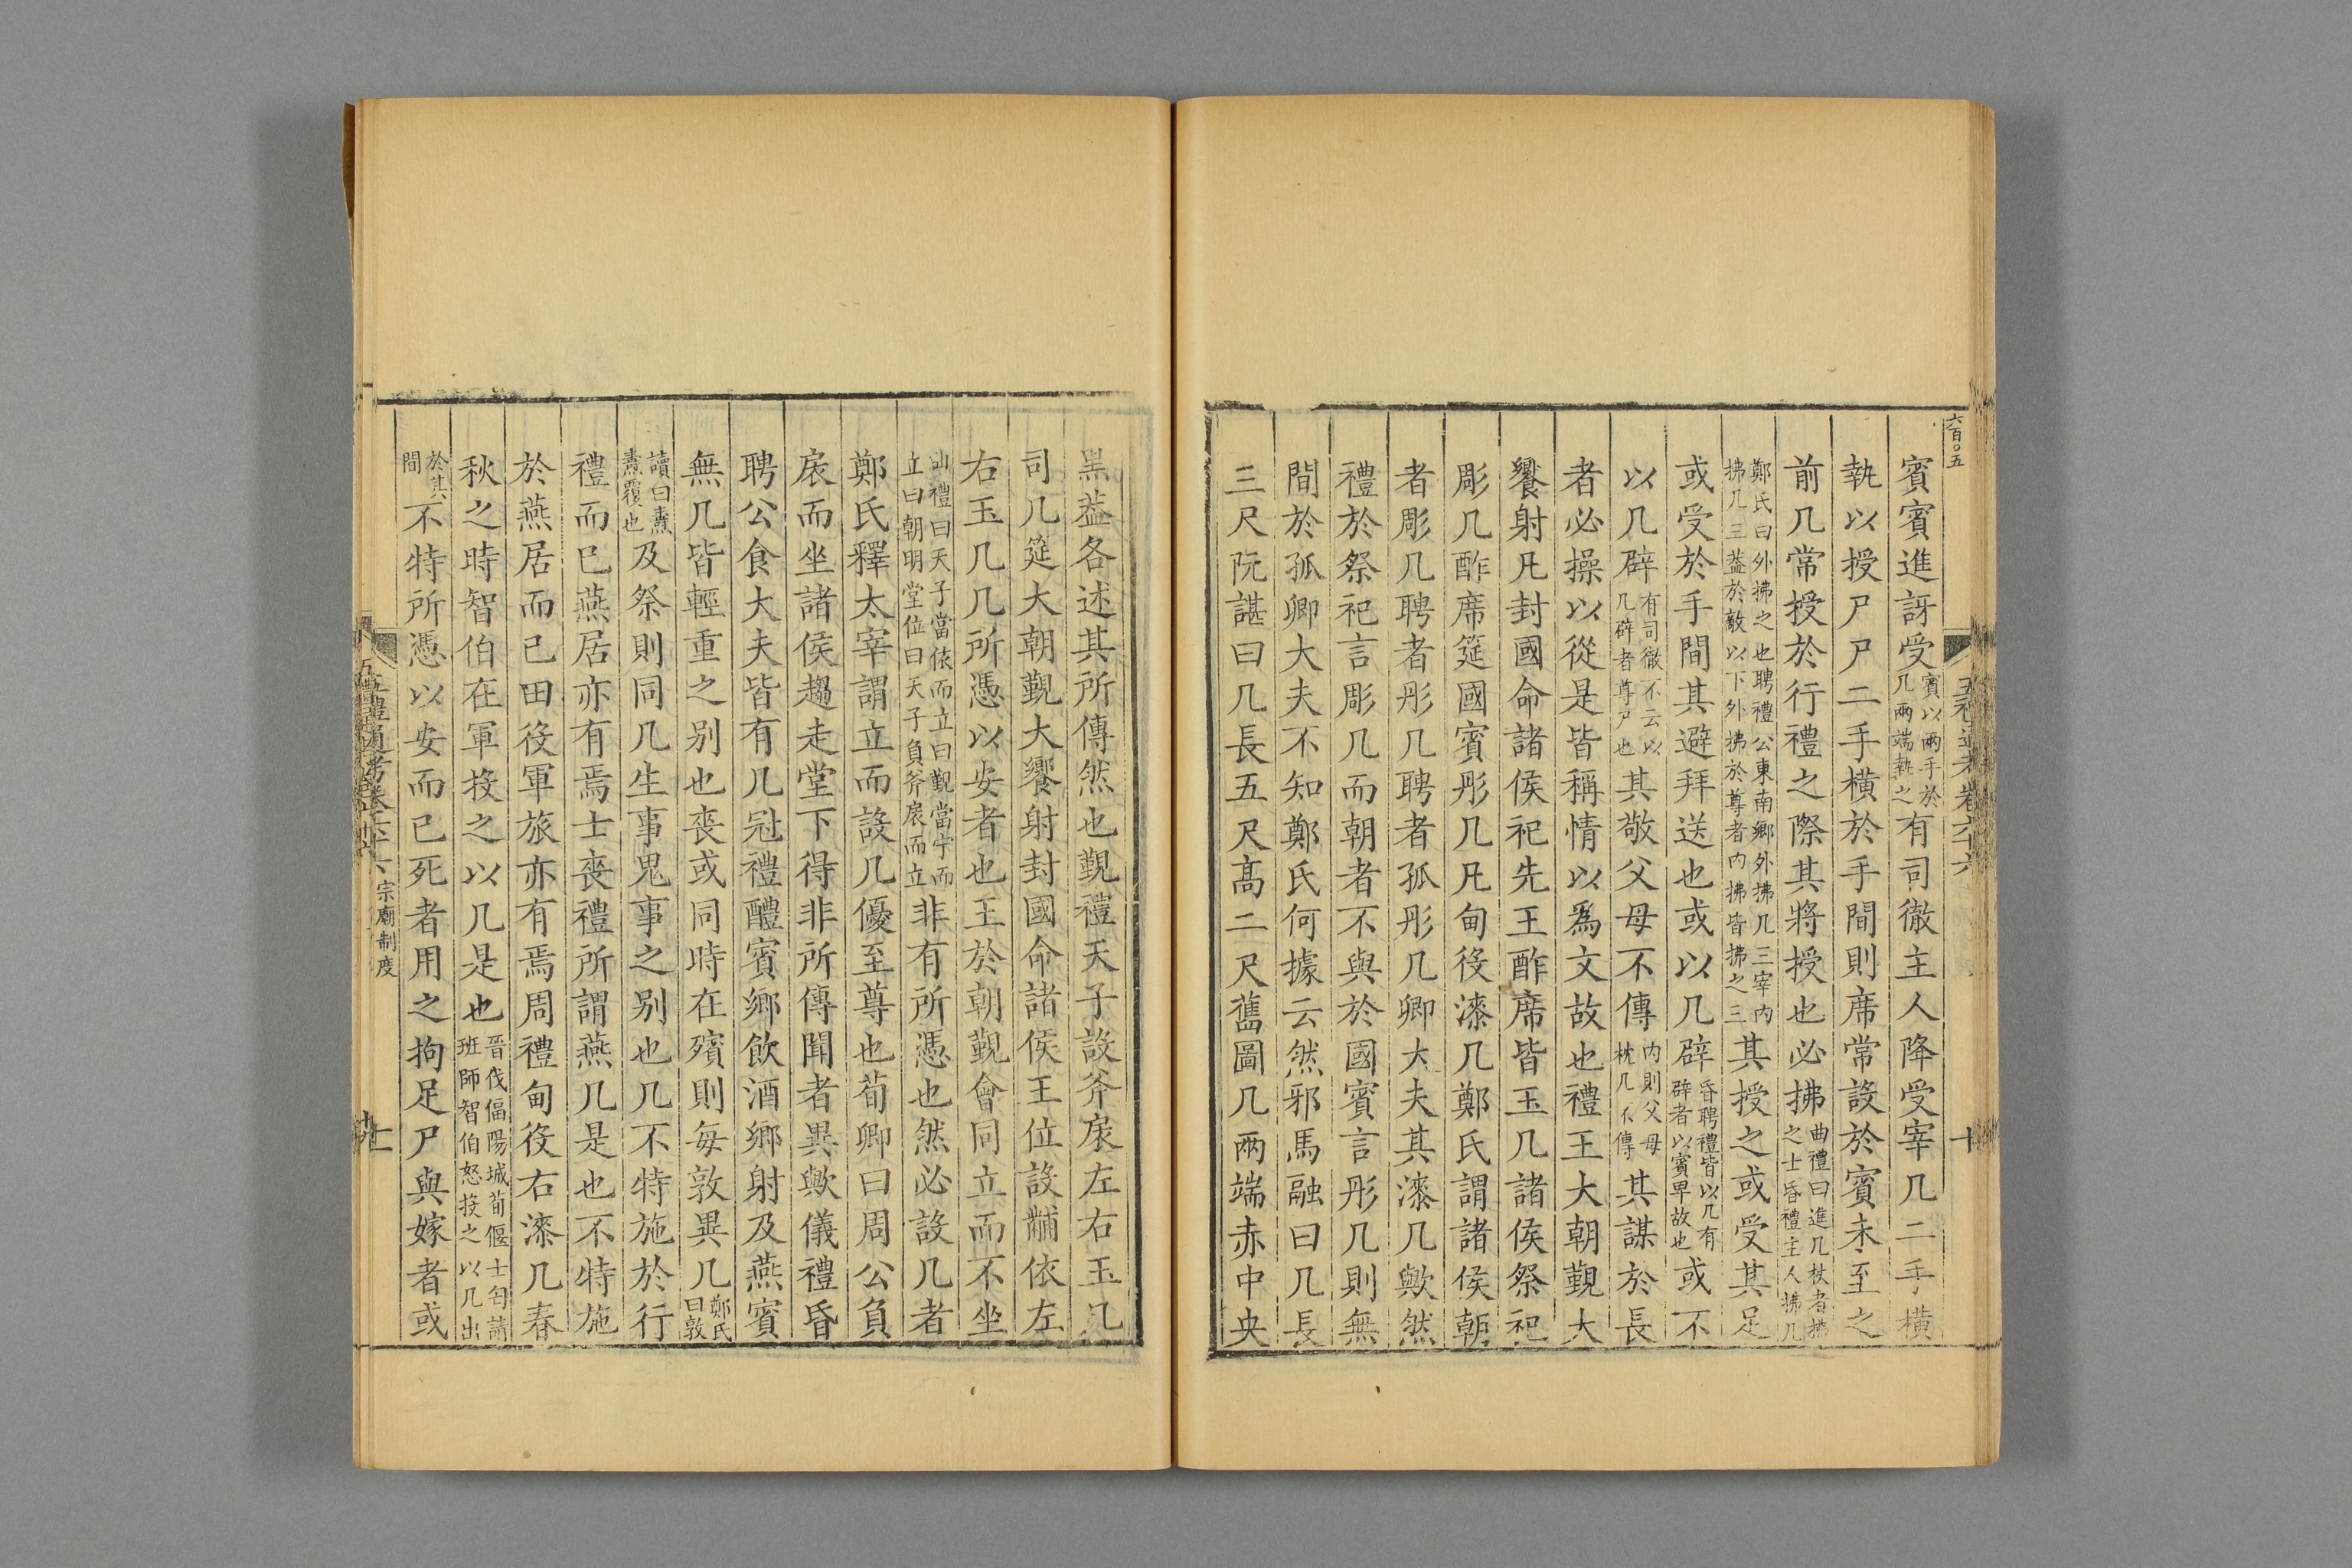 六百○五
五禮通考卷六十六
十
賓賓進訝受賓以兩手於几兩端執之有司徹主人降受宰几二手橫
執以授尸尸二手橫於手間則席常設於賓未至之
前几常授於行禮之際其將授也必拂曲禮曰進几杖者拂之士昏禮主人拂几
鄭氏曰外拂之也聘禮公東南鄉外拂几三宰內拂几三蓋於敵以下外拂於尊者內拂皆拂之三其授之或受其足
或受於手間其避拜送也或以几辟昏聘禮皆以几有辟者以賓卑故也或不
以几辟有司徹不云以几辟者尊尸也其敬父母不傳內則父母枕几不傳其謀於長
者必操以從是皆稱情以爲文故也禮王大朝覲大
饗射凡封國命諸侯祀先王酢席皆玉几諸侯祭祀
彫几酢席筵國賓彤几凡甸役漆几鄭氏謂諸侯朝
者彫几聘者彤几聘者孤彤几卿大夫其漆几歟然
禮於祭祀言彫几而朝者不與於國賓言彤几則無
間於孤卿大夫不知鄭氏何據云然邪馬融曰几長
三尺阮諶曰几長五尺高二尺舊圖几兩端赤中央
黑蓋各述其所傳然也覲禮天子設斧扆左右玉几
司几筵大朝覲大饗射封國命諸侯王位設黼依左
右玉几几所憑以安者也王於朝覲會同立而不坐
曲禮曰天子當依而立曰覲當宁而立曰朝明堂位曰天子負斧扆而立非有所憑也然必設几者
鄭氏釋太宰謂立而設几優至尊也荀卿曰周公負
扆而坐諸侯趨走堂下得非所傳聞者異歟儀禮昏
聘公食大夫皆有几冠禮醴賓鄉飲酒鄉射及燕賓
無几皆輕重之别也喪或同時在殯則每敦異几鄭氏曰敦
讀曰燾燾覆也及祭則同几生事鬼事之别也几不特施於行
禮而已燕居亦有焉士喪禮所謂燕几是也不特施
於燕居而已田役軍旅亦有焉周禮甸役右漆几春
秋之時智伯在軍投之以几是也晉伐偪陽城荀偃士匄請班師智伯怒投之以几出
於其間不特所憑以安而已死者用之拘足尸與嫁者或
五禮通考卷六十六 宗廟制度
十一